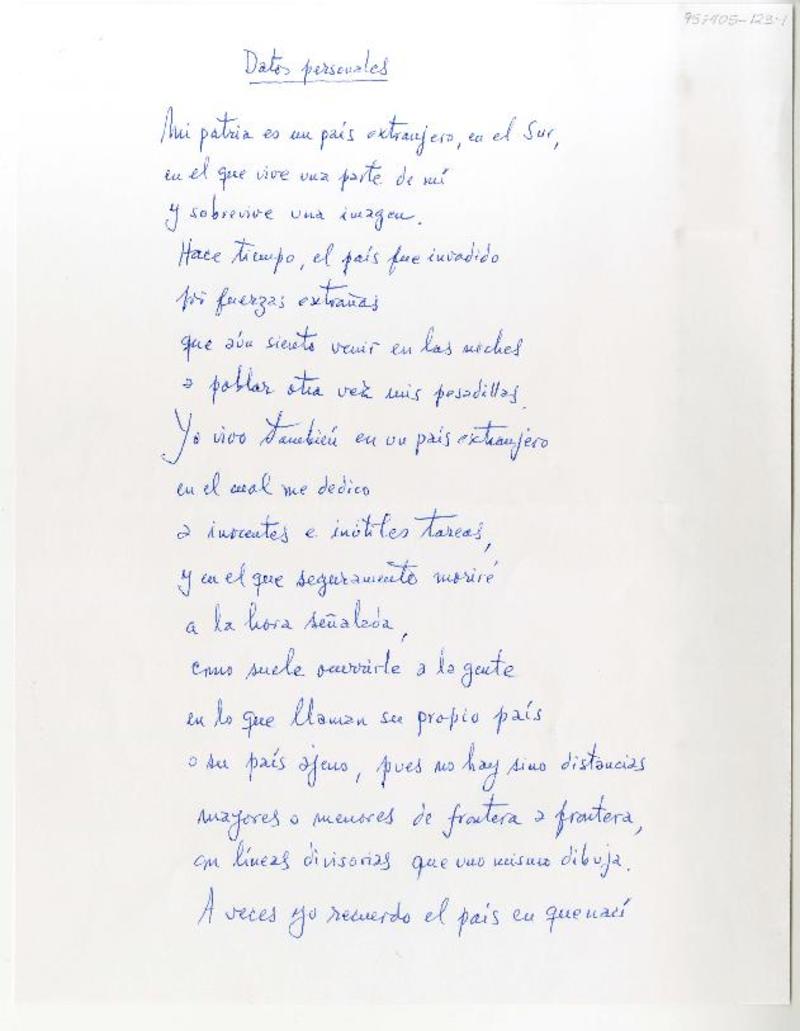 95-405-123-1
Datos personales
Mi patria es un país extranjero, en el Sur,
en el que vive una parte de mí
y sobrevive una imagen.
Hace tiempo, el país fue invadido
por fuerzas extrañas
que aún siento venir en las noches
a poblar otra vez mis pesadillas.
Yo vivo también en un país extranjero
en el cual me dedico
a inocentes e inútiles tareas,
y en el que seguramente moriré
a la hora señalada,
como suele ocurrirle a la gente
en lo que llaman su propio país
o su país ajeno, pues no hay sino distancias
mayores o menores de frontera a frontera,
con líneas divisorias que uno mismo dibuja.
A veces yo recuerdo el país en que nací